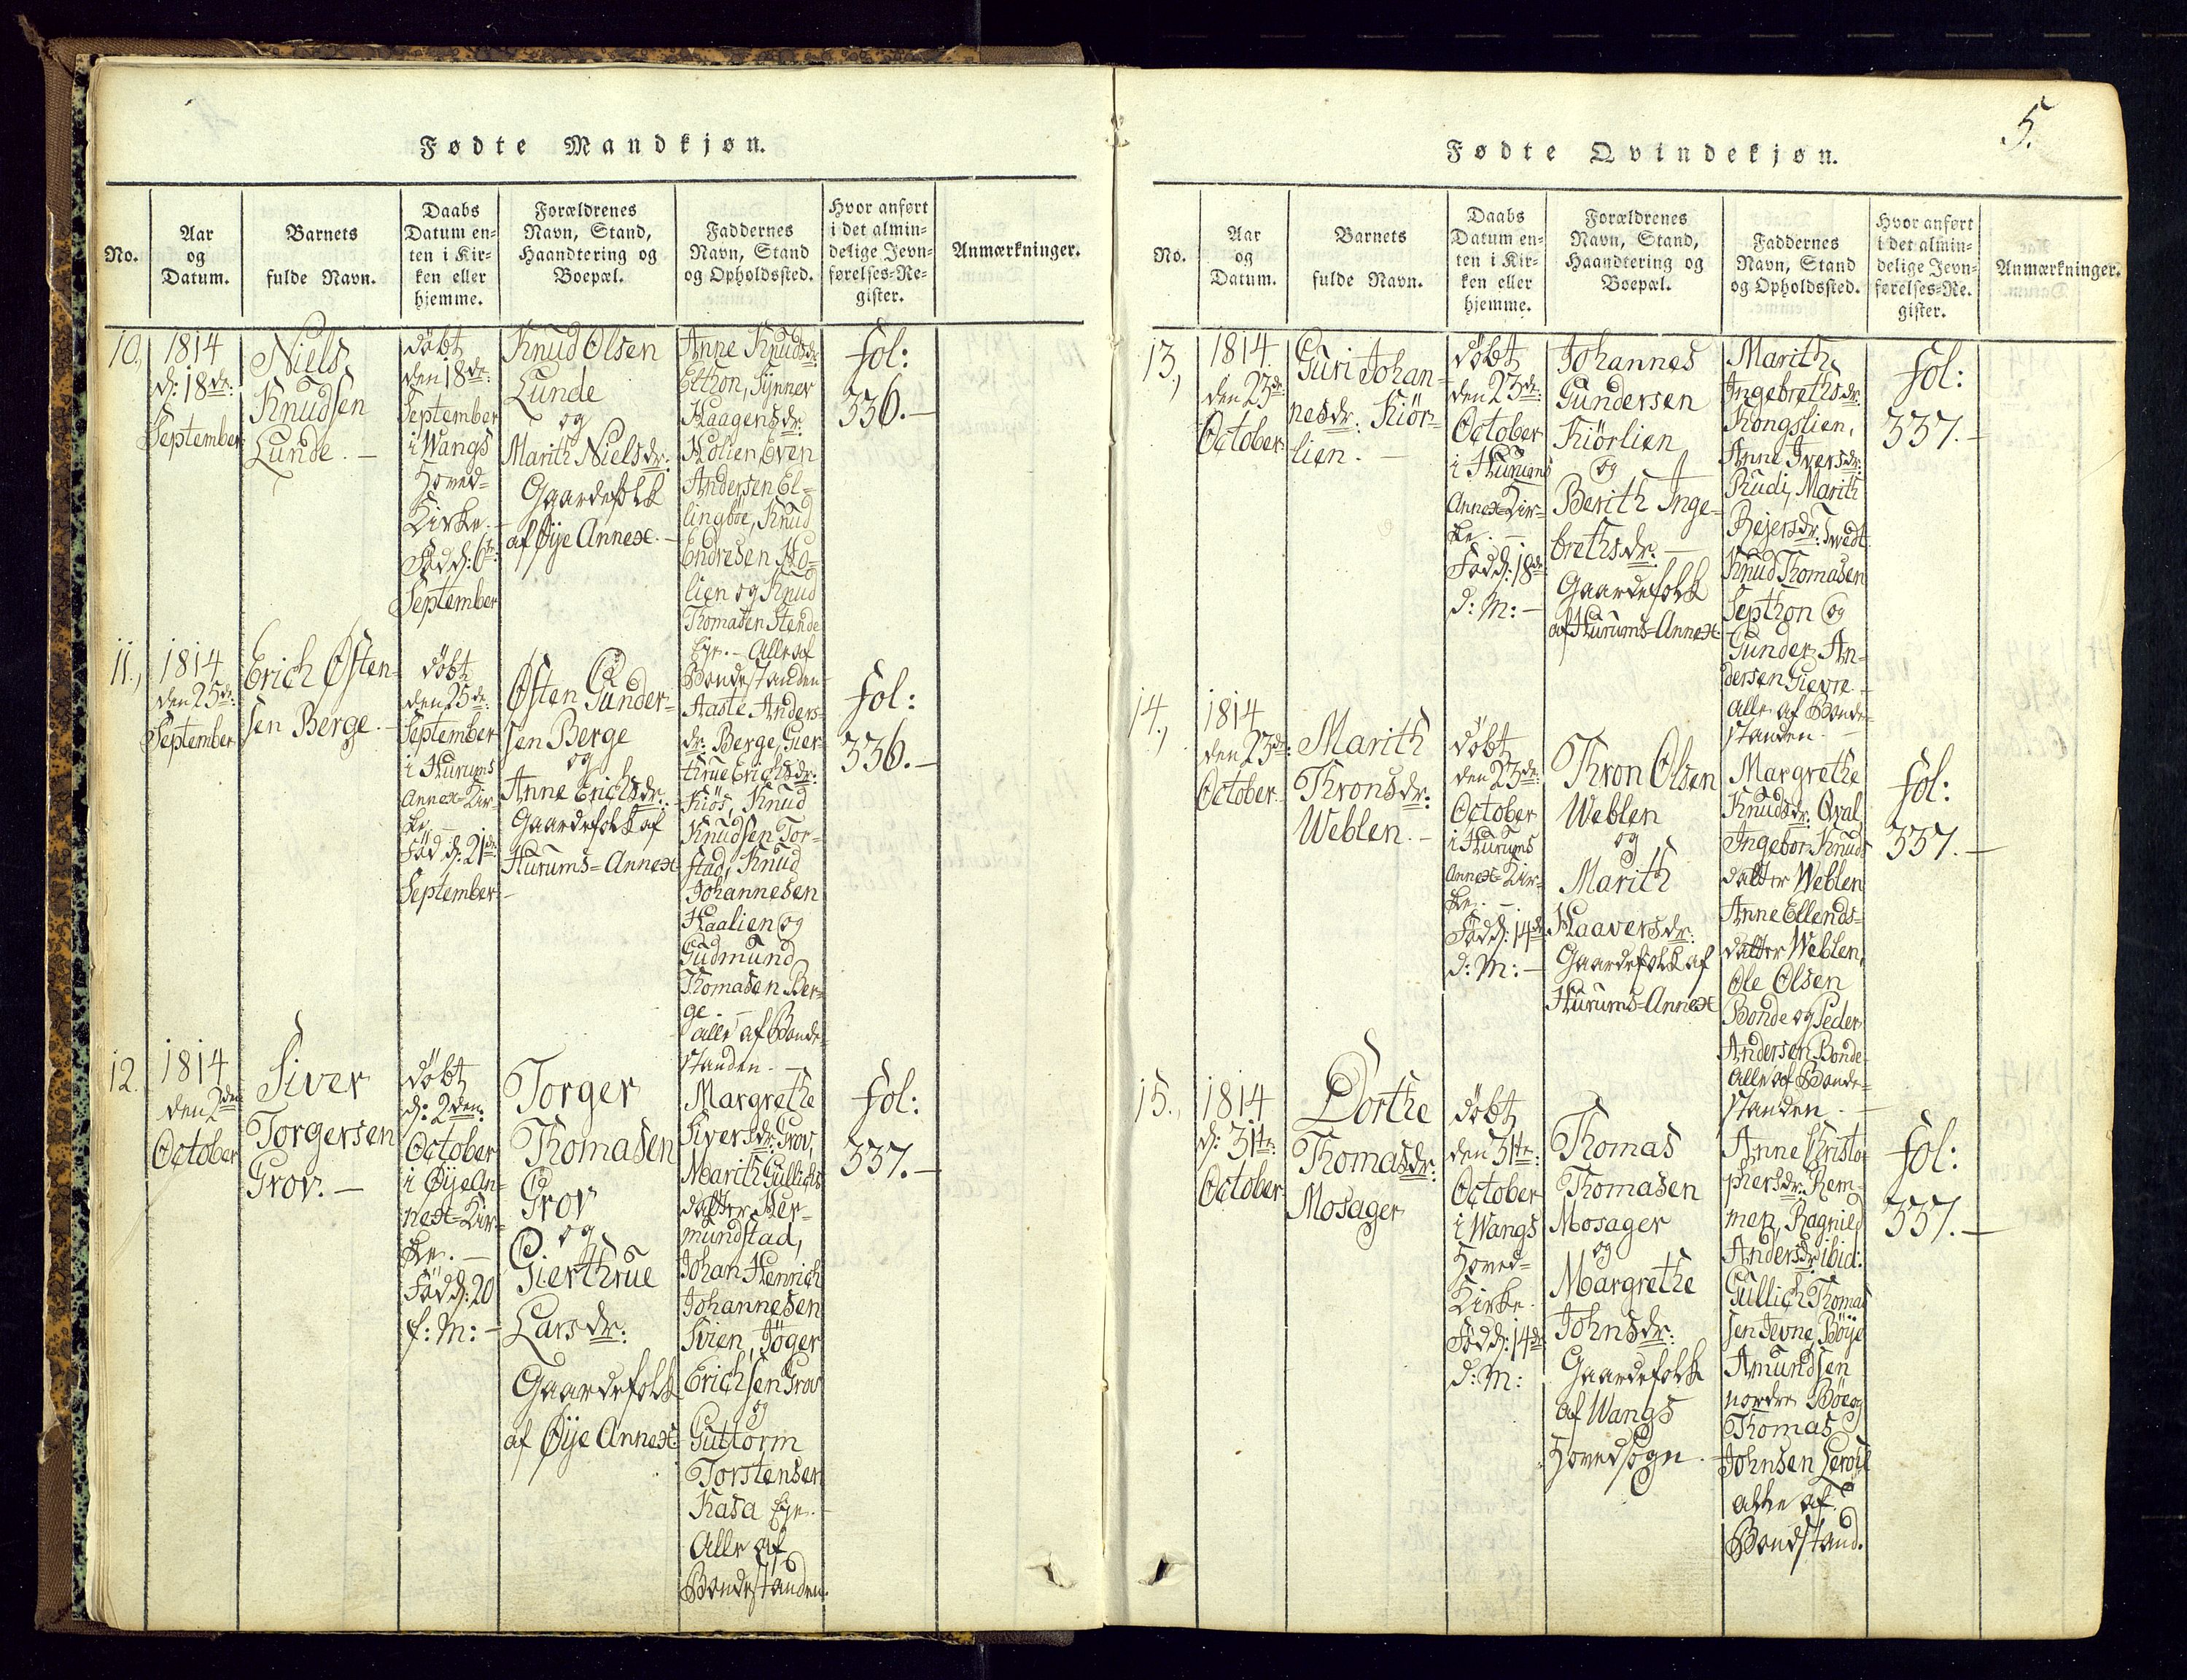 Fødte Mandkjøn.
No.
Aar
og
Datum.
Barnets
fulde Navn.
Daabs
Datum en=
ten i Kir=
ken eller
hjemme.
Forældrenes
Navn, Stand,
Haandtering og
Boepæl.
Faddernes
Navn, Stand
og Opholdssted.
Hvor anført
i det almin=
delige Jevn=
førelses=Re=
gister.
Anmærkninger.
10.,
1814
d: 18de:
September
Niels
Knudsen
Lunde. —
døbt
den 18de:
September
i Wangs
Hoved=
Kirke. —
Fød d: 6te:
September
Knud Olsen
Lunde
og
Marith Nielsdr:
Gaardefolk
af Øije Annex. —
Anne Knudsdr:
Elthon, Synner
Haagensdr:
Holien, Even
Andersen El=
lingbøe, Knud
Endresen Ho=
lien og Knud
Thomasen Stende
Eje. — Alle af
Bondestanden
fol:
336. —
11.,
1814
den 25de:
September
Erich Østen=
sen Berge. —
døbt
den 25de:
September
i Hurums
Annex=Kir=
ke. —
Fød d: 21de:
September. —
Østen Gunder=
sen Berge
og
Anne Erichsdr:
Gaardefolk af
Hurums=Annex
Aaste Anders=
dr: Berge, Gier=
thrue Erichsdr:
Kiøs, Knud
Knudsen Tor=
stad, Knud
Johannesen
Haalien og
Gudmund
Thomasen Ber=
ge. —
alle af Bonde=
standen. —
fol:
336. —
12.
1814
den 2den
October
Siver
Torgersen
Grov. —
døbt
d: 2den:
October
i Øije An=
nex=Kir=
ke. —
Fød d: 20
f: M: —
Torger
Thomasen
Grov
og
Gierthrue
Larsdr:
Gaardefolk
af Øije Annex:
Margrethe
Siversdr: Grov,
Marith Gullichs
datter Her=
mundstad,
Johan Henrich
Johannesen
Svien, Jøger
Erichsen Grov
og
Guttorm
Torstensen
Kasa Eje. —
Alle af
Bondestanden.
fol:
337. —
5.
Fødte Qvindekjøn.
No.
Aar
og
Datum.
Barnets
fulde Navn.
Daabs
Datum en=
ten i Kir=
ken eller
hjemme.
Forældrenes
Navn, Stand,
Haandtering og
Boepæl.
Faddernes
Navn, Stand
og Opholdssted.
Hvor anført
i det almin=
delige Jevn=
førelses=Re=
gister.
Anmærkninger.
13.,
1814.
den 23de:
October
Guri Johan=
nesdr: Kiør=
lien. —
døbt
den 23de:
October
i Hurums
Annex=Kir=
ke. —
Fød d: 18de
d: M: —
Johannes
Gundersen
Kiørlien
og
Berith Inge=
brethsdr: —
Gaardefolk
af Hurums=Annex
Marith
Ingebrethsdr:
Kongslien,
Anne Iversdr:
Rudi, Marith
Rejersdr: Twedt
Knud Thomasen
Septhon og
Gunder An=
dersen Gievre. —
alle af Bonde=
standen. —
fol:
337. —
14.,
1814
den 23de:
October
Marith
Thronsdr:
Weblen. —
døbt
den 23de:
October
i Hurums
Annex=Kir=
ke. —
Fød d: 14de
d: M: —
Thron Olsen
Weblen
og
Marith
Haaversdr:
Gaardefolk af
Hurums=Annex
Margrethe
Knudsdr: Qval,
Ingebor Knuds
datter Weblen
Anne Ellends=
datter Weblen,
Ole Olsen
Bonde og Peder
Andersen Bonde
Alle af Bonde=
standen. —
fol:
337. —
15.,
1814
d: 31te:
October
Dorthe
Thomasdr:
Mosager
døbt
den 31te:
October
i Wangs
Hoved=
Kirke.
Fød d: 14de
d: M:
Thomas
Thomasen
Mosager
og
Margrethe
Johnsdr:
Gaardefolk
af Wangs
Hovedsogn. —
Anne Christo
phersdr: Rem=
men, Ragnild
Andersdr: ibid:
Gullich Thomas
sen Jevne, Bøije
Amundsen
nordre Bøe og
Thomas
Johnsen
alle af
Bondstand.
fol:
337. —